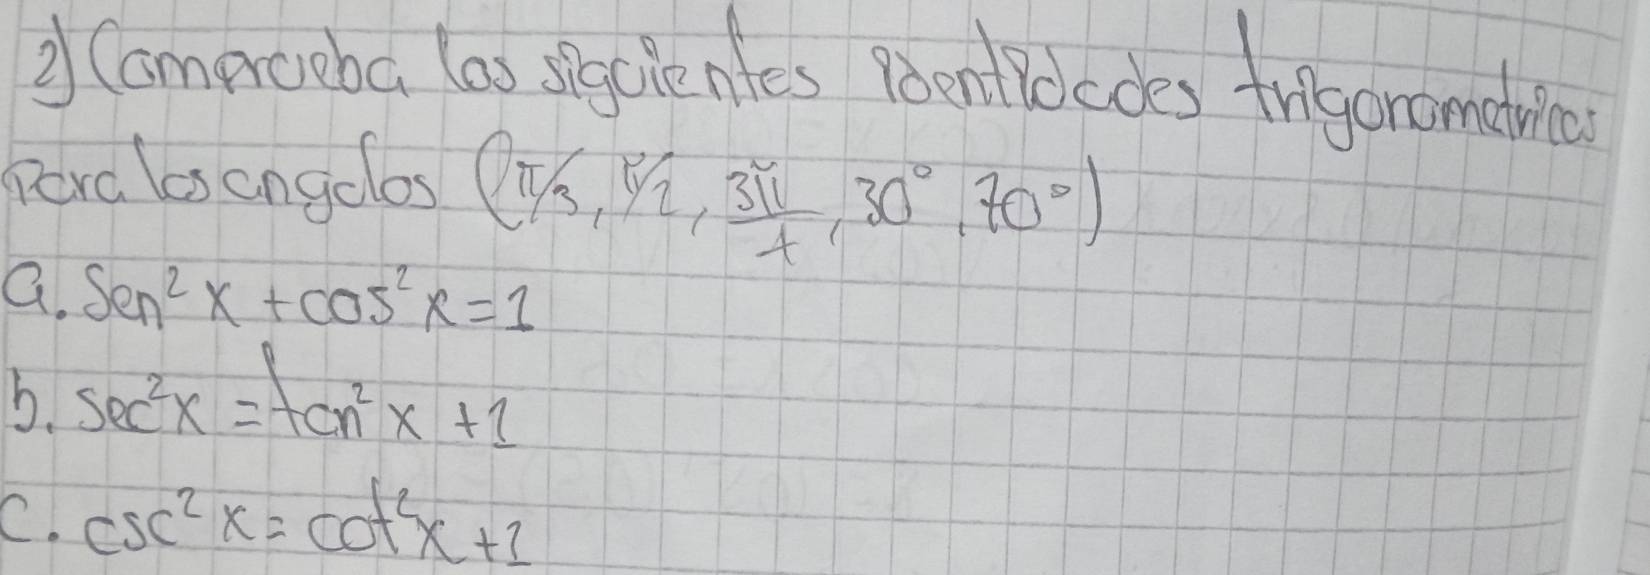 2) Comprueba las siguientes identidades trigonometricas
Para los angulos (π/3, π/2, 3π/4, 30°, 70°)
a. Sen² x + cos² x = 1
b. sec² x = tan² x + 1
c. csc² x = cot² x + 1